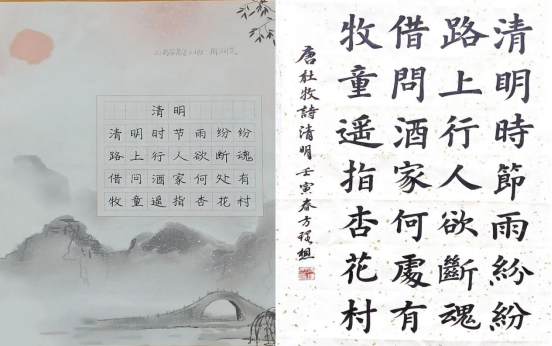 清明
清明时节雨纷纷
路上行人欲断魂
借问酒家何处有
牧童遥指杏花村
清明時節雨紛紛
路上行人欲斷魂
借問酒家何處有
牧童遥指杏花村
唐杜牧詩清明壬寅春方